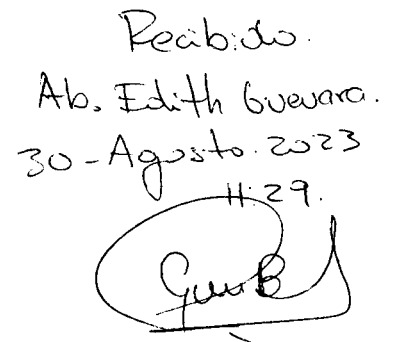 Recibido.
Ab. Edith Guevara.
30-Agosto.2023
11:29.